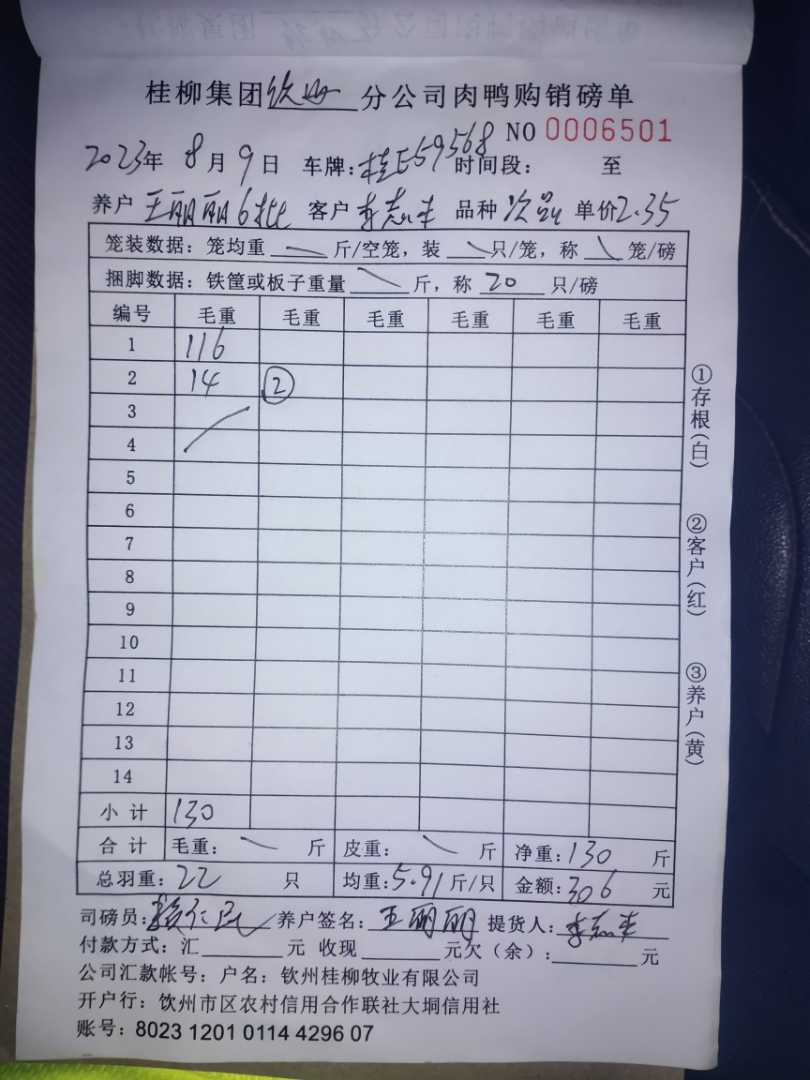 桂柳集团钦州分公司肉鸭购销磅单
NO 0006501
2023年 8月 9日 车牌:桂E59568 时间段: 至
养户 王丽丽6批 客户 李志丰 品种 次品 单价2.35
笼装数据: 笼均重 斤/空笼, 装 只/笼, 称 笼/磅
捆脚数据: 铁筐或板子重量 斤, 称 20 只/磅
编号 毛重 毛重 毛重 毛重 毛重 毛重
1 116
2 14 ②
3
4
5
6
7
8
9
10
11
12
13
14
小计 130
合计 毛重: 斤 皮重: 斤 净重:130 斤
总羽重:22 只 均重:5.91斤/只 金额:306 元
①存根(白)
②客户(红)
③养户(黄)
司磅员: 养户签名:王丽丽 提货人:李志丰
付款方式: 汇 元 收现 元欠(余): 元
公司汇款帐号: 户名: 钦州桂柳牧业有限公司
开户行: 饮州市区农村信用合作联社大垌信用社
账号: 8023 1201 0114 4296 07